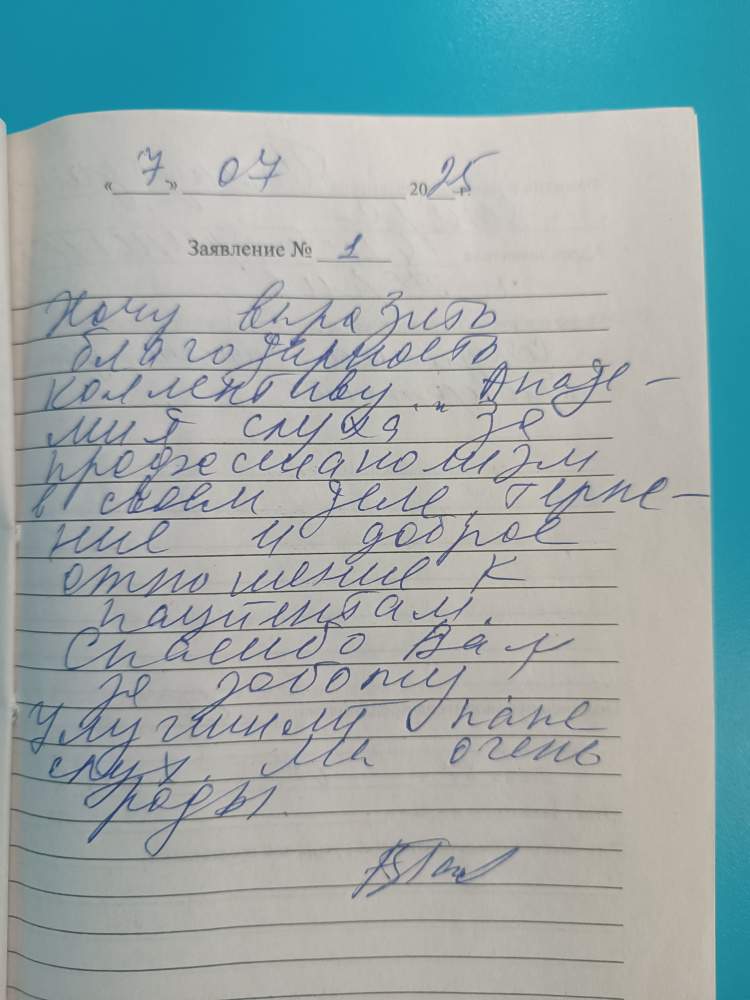 « 7 » 07 2025 г.
Заявление № 1
Хочу выразить
благодарность
коллективу " Акаде-
мия слуха за
професианолизм
в своем деле, терпе-
ние и доброе
отношение к
пациентам.
Спасибо Вам
за заботу
улучшили папе
слух. Мы очень
рады.